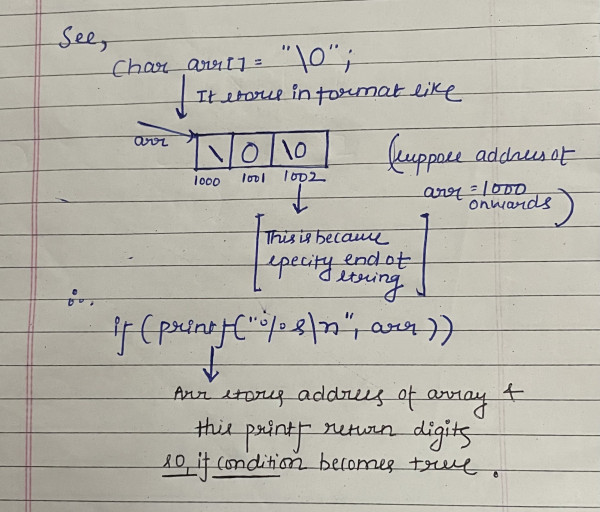 See,
Char arr[] = "\0";
It stores in format like
arr
\ 0 \0
1000 1001 1002
(suppose address of
arr = 1000
onwards)
[This is because
specify end of
string]
∴
if (printf("%s\n", arr))
Arr stores address of array &
this printf return digits
so, if condition becomes true.